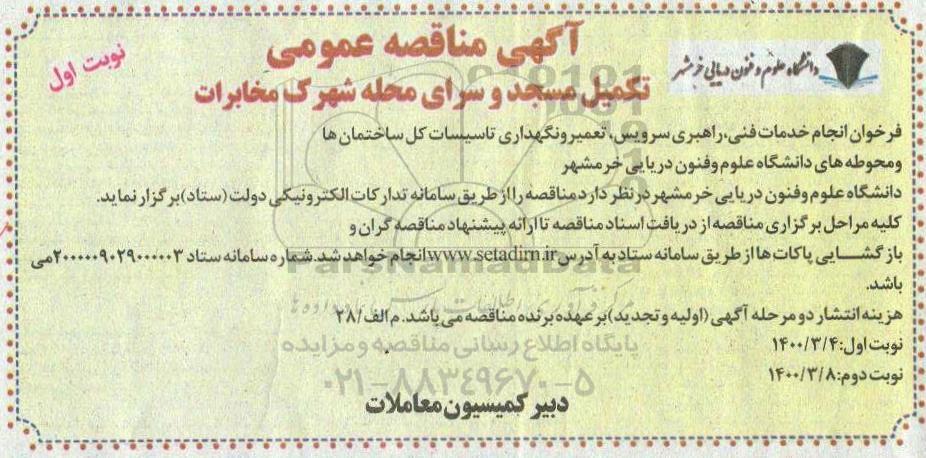 آگهی مناقصه عمومی
نوبت اول
دانشگاه علوم و فنون دریایی خرمشهر
تکمیل مسجد و سرای محله شهرک مخابرات
فرخوان انجام خدمات فنی،راهبری سرویس، تعمیرونگهداری تاسیسات کل ساختمان ها
ومحوطه های دانشگاه علوم وفنون دریایی خرمشهر
دانشگاه علوم وفنون دریایی خرمشهر درنظر دارد مناقصه را از طریق سامانه تدارکات الکترونیکی دولت (ستاد)برگزار نماید.
کلیه مراحل برگزاری مناقصه از دریافت اسناد مناقصه تا ارائه پیشنهاد مناقصه گران و
بازگشــایی پاکات ها از طریق سامانه ستاد به آدرس www.setadirn.ir انجام خواهد شد.شماره سامانه ستاد ۲۰۰۰۰۰۹۰۲۹۰۰۰۰۰۳می
باشد.
هزینه انتشار دو مرحله آگهی (اولیه و تجدید)بر عهده برنده مناقصه می باشد. م الف/۲۸
نوبت اول:۱۴۰۰/۳/۴
نوبت دوم:۱۴۰۰/۳/۸
دبیر کمیسیون معاملات
ParsNamadData
پایگاه اطلاع رسانی مناقصه و مزایده
۰۲۱-۸۸۳۴۹۶۷۰-۵